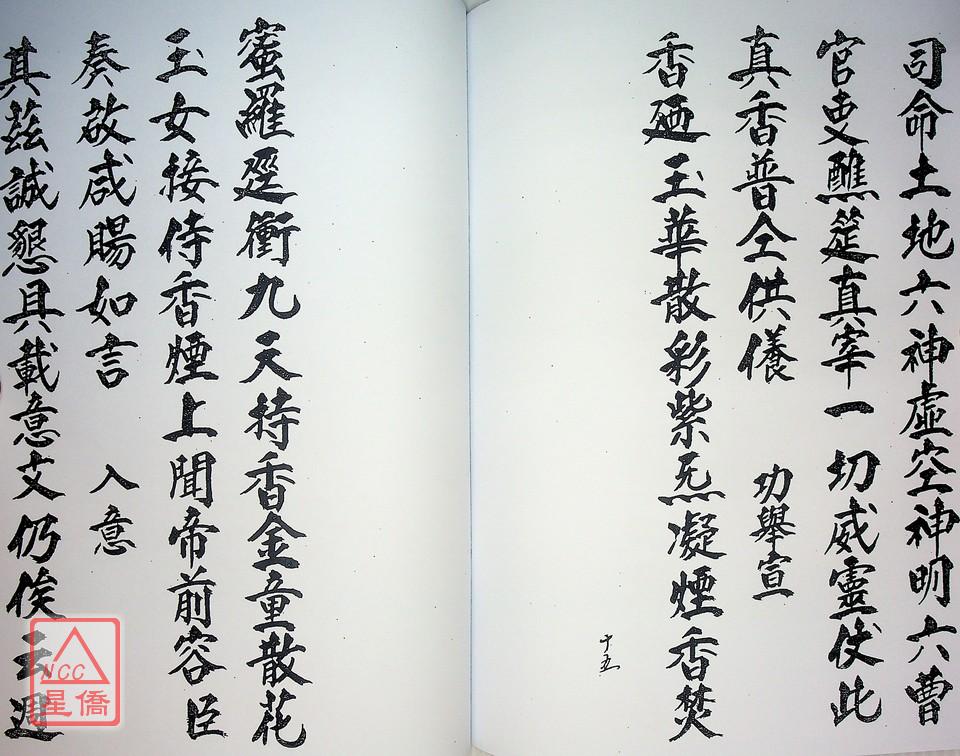 司命土地六神虛空神明六曹
官吏醮筵真宰一切威靈仗此
真香普仝供養 功舉宣
香廼玉華散彩紫炁凝煙香焚
十五
蜜羅逕衝九天持香金童散花
玉女接侍香煙上聞帝前容臣
奏啟咸賜如言 入意
其茲誠懇具載意文仍俟云週
NCC
星僑